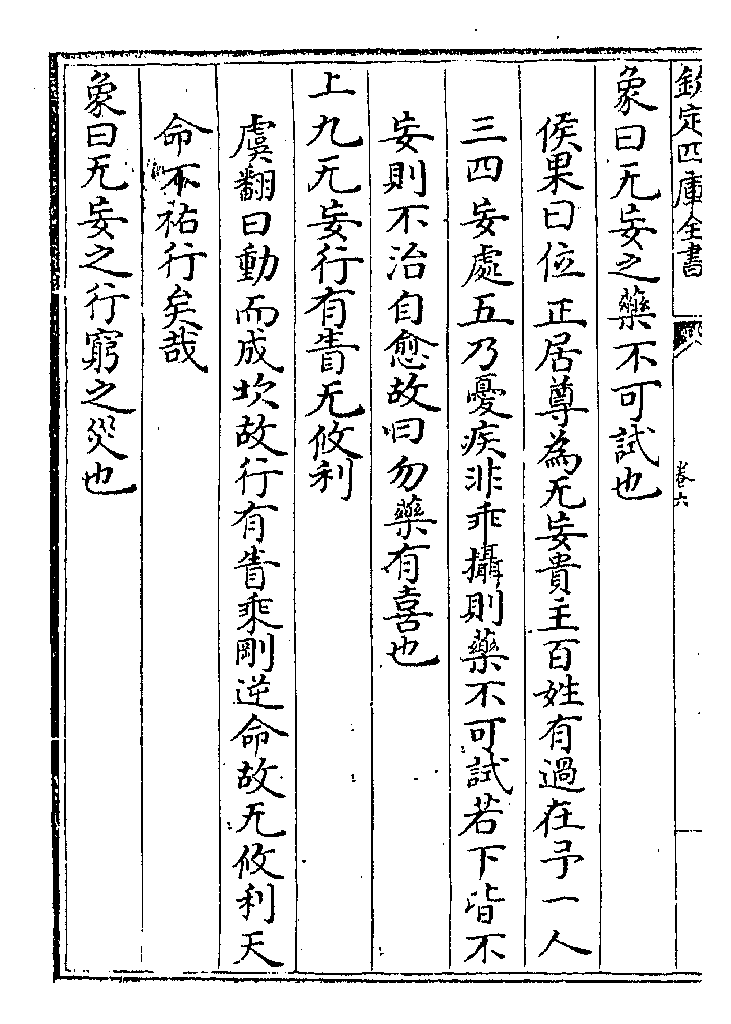 欽定四庫全書
卷六
象曰无妄之藥不可試也
侯果曰位正居尊為无妄貴主百姓有過在予一人
三四妄處五乃憂疾非乖攝則藥不可試若下皆不
妄則不治自愈故曰勿藥有喜也
上九无妄行有眚无攸利
虞翻曰動而成坎故行有眚乘剛逆命故无攸利天
命不祐行矣哉
象曰无妄之行窮之災也